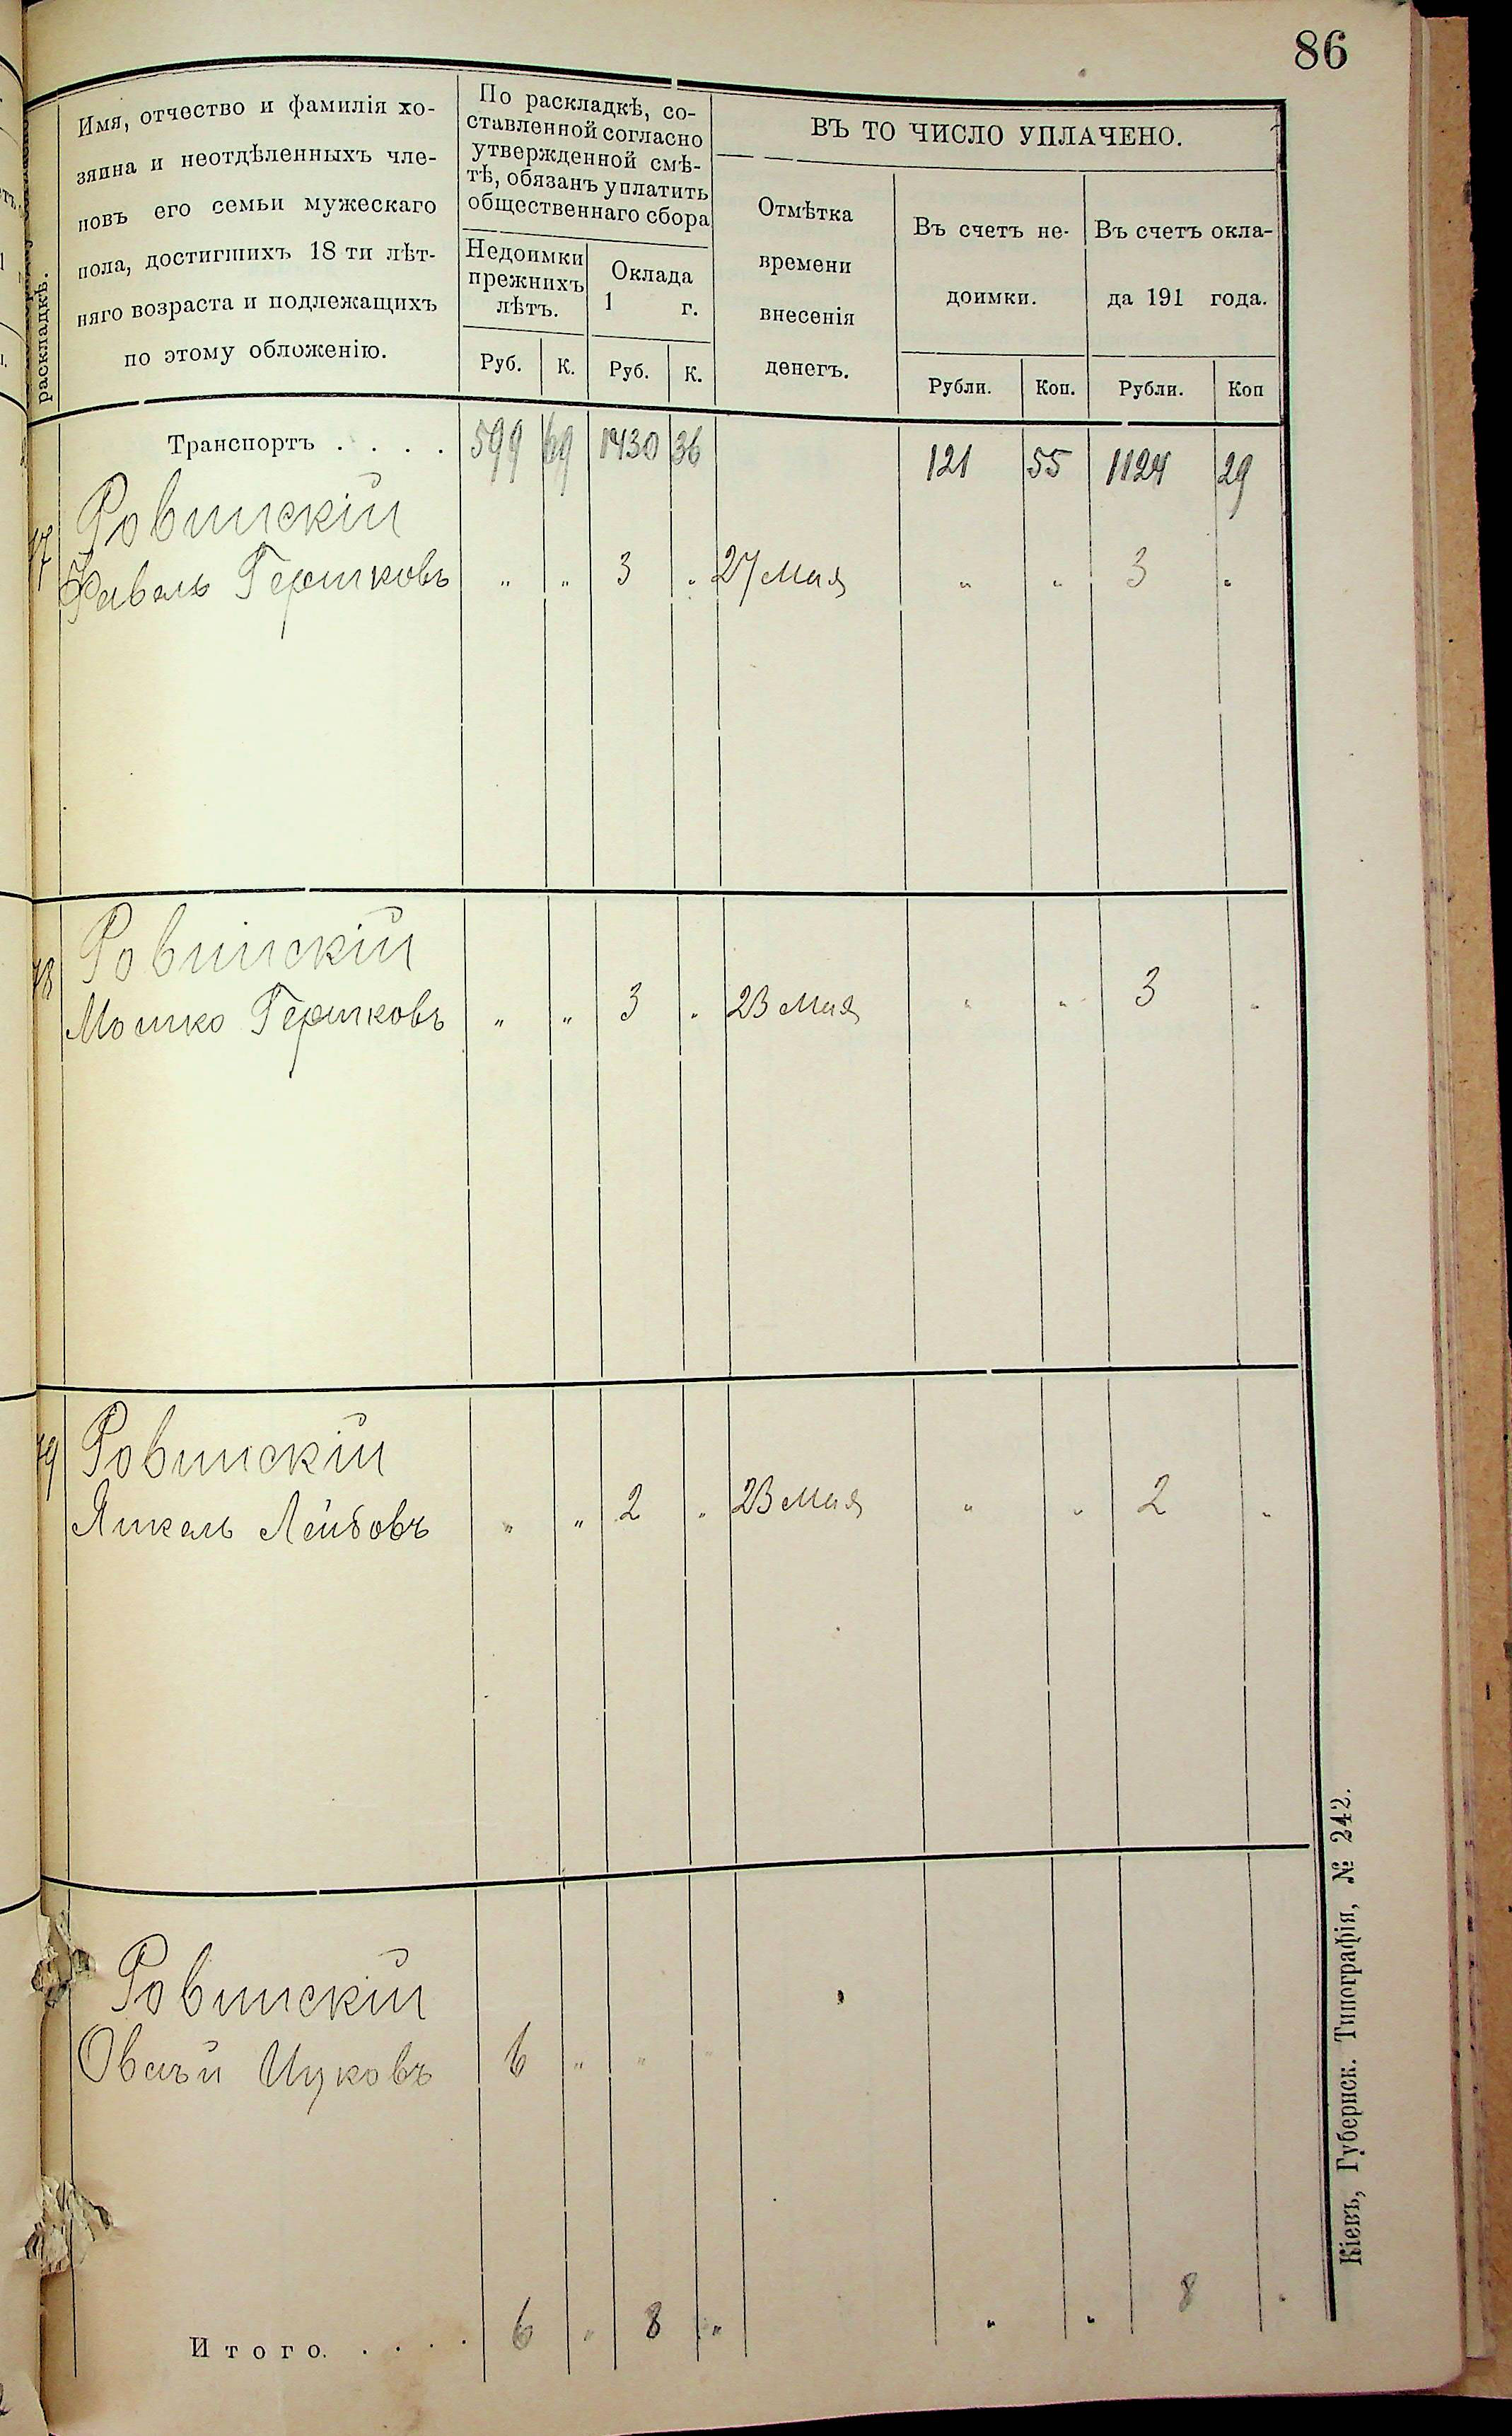 86
раскладкѣ.
Имя, отчество и фамилія хо-
зяина и неотдѣленныхъ чле-
новъ его семьи мужескаго
пола, достигшихъ 18 ти лѣт-
няго возраста и подлежащихъ
по этому обложенію.
По раскладкѣ, со-
ставленной согласно
утвержденной смѣ-
тѣ, обязанъ уплатить
общественнаго сбора
Недоимки
прежнихъ
лѣтъ.
Оклада
1 г.
Руб. К. Руб. К.
ВЪ ТО ЧИСЛО УПЛАЧЕНО.
Отмѣтка
времени
внесенія
денегъ.
Въ счетъ не-
доимки.
Въ счетъ окла-
да 191 года.
Рубли. Коп. Рубли. Коп
Транспортъ . . . . 599 69 1430 36 121 55 1124 29
Ровинскій
Фавель Гершковъ " " 3 " 27 Мая " " 3 "
Ровинскій
Мошко Гершковъ " " 3 " 23 Мая " " 3 "
Ровинскій
Янкель Лейбовъ " " 2 " 23 Мая " " 2 "
Ровинскій
Овсѣй Ицковъ 6 " " "
Итого. . . . . 6 " 8 " " " 8 "
Кіевъ, Губернск. Типографія, № 242.